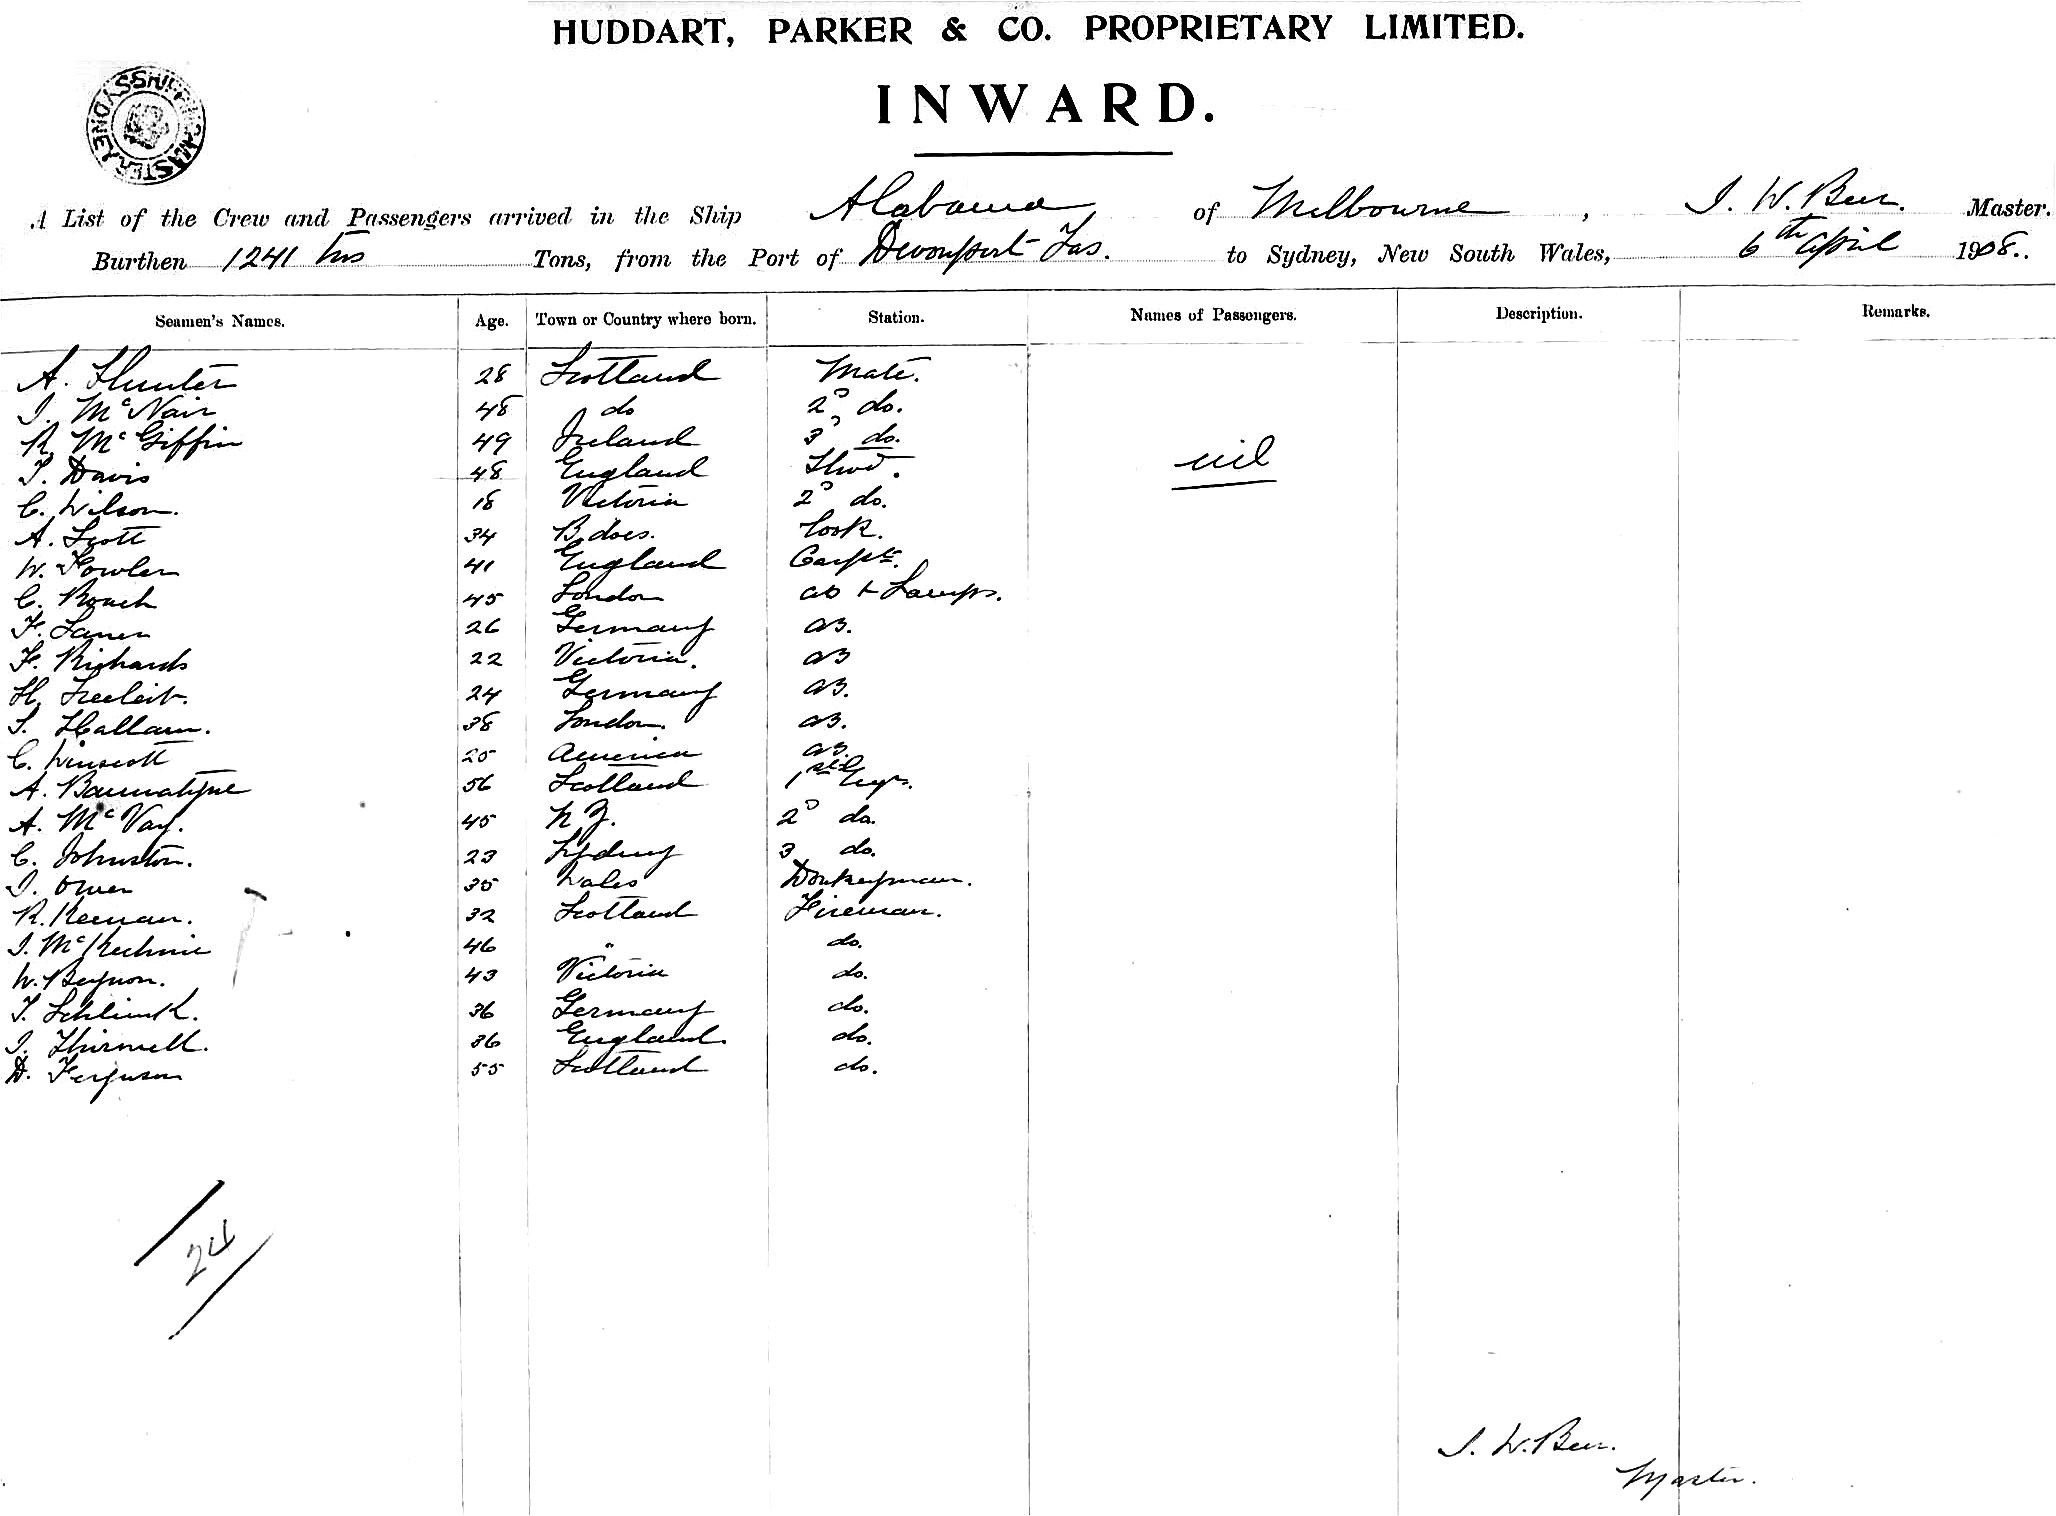 HUDDART, PARKER & CO. PROPRIETARY LIMITED.
INWARD.
SHIPPING MASTER SYDNEY
A List of the Crew and Passengers arrived in the Ship Alabama of Melbourne, J. W. Beer. Master.
Burthen 1241 tns Tons, from the Port of Devonport Tas. to Sydney, New South Wales, 6th April 1908.
Seamen's Names. Age. Town or Country where born. Station. Names of Passengers. Description. Remarks.
A. Hunter 28 Scotland Mate.
J. McNair 48 do 2d do.
R. McGiffin 49 Ireland 3d do.
nil
T. Davis 48 England Stwd.
C. Wilson. 18 Victoria 2d do.
A. Scott 34 B.does. Cook.
W. Fowler 41 England Carptr.
C. Roach 45 London AB + Lamps.
F. 26 Germany AB.
F. Richards 22 Victoria. AB
H. 24 Germany AB.
S. Hallam. 38 London. AB.
C. Winscott 25 America AB.
A. Bannatyne 56 Scotland 1st Engr.
A. McVay. 45 N Z. 2d do.
C. Johnston. 23 Sydney 3 do.
J. Owen 35 Wales Donkeyman.
R. Keenan. 32 Scotland Fireman.
J. McKechnie 46 " do.
W. Beynon. 43 Victoria do.
T. Schlimk. 36 Germany do.
J. Thirwell. 36 England. do.
D. Ferguson 55 Scotland do.
24
J. W. Beer.
Master.